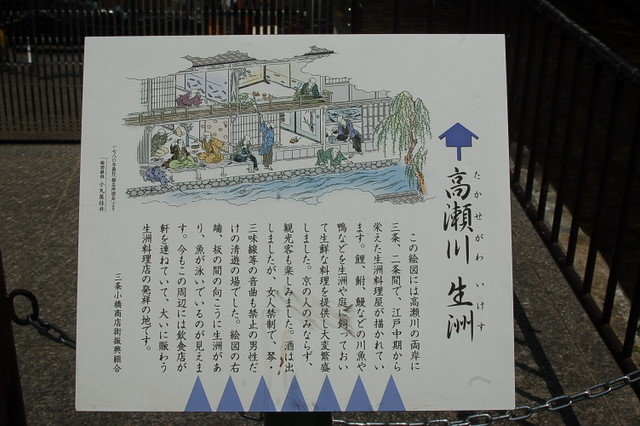 高瀬川 生洲
たかせがわ いけす
この絵図には高瀬川の両岸に
三条、二条間で、江戸中期から
栄えた生洲料理屋が描かれてい
ます。鯉、鮒、鰻などの川魚や
鴨などを生洲や庭に飼っておい
て生鮮な料理を提供し大変繁盛
しました。京の人のみならず、
観光客も楽しみました。酒は出
しましたが、女人禁制で、琴・
三味線等の音曲も禁止の男性だ
けの清遊の場でした。絵図の右
端、板の間の向こうに生洲があ
り、魚が泳いでいるのが見えま
す。今もこの周辺には飲食店が
軒を連ねていて、大いに賑わう
生洲料理店の発祥の地です。
三条小橋商店街振興組合